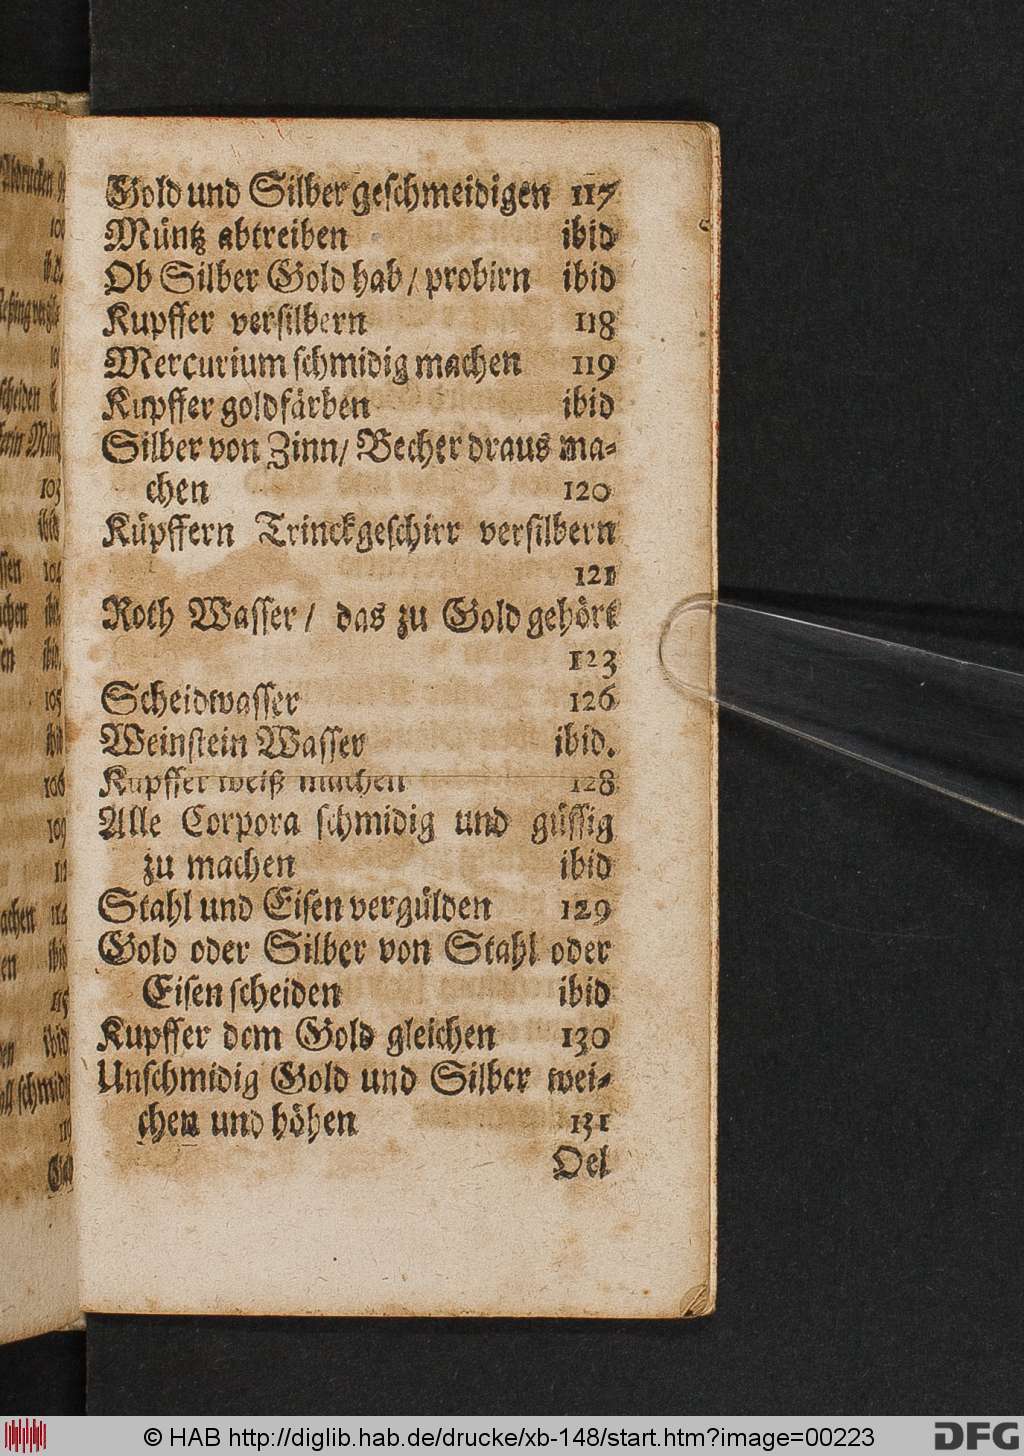 Gold und Silber geſchmeidigen 117
Müntz abtreiben ibid
Ob Silber Gold hab / probirn ibid
Kupffer verſilbern 118
Mercurium ſchmidig machen 119
Kupffer goldfärben ibid
Silber von Zinn / Becher draus ma⸗
chen 120
Küpffern Trinckgeſchirr verſilbern
121
Roth Waſſer / das zu Gold gehört
123
Scheidwaſſer 126
Weinſtein Waſſer ibid.
Kupffer weiß machen 128
Alle Corpora ſchmidig und güſſig
zu machen ibid
Stahl und Eiſen vergülden 129
Gold oder Silber von Stahl oder
Eiſen ſcheiden ibid
Kupffer dem Gold gleichen 130
Unſchmidig Gold und Silber wei⸗
chen und höhen 131
Oel
© HAB http://diglib.hab.de/drucke/xb-148/start.htm?image=00223
DFG